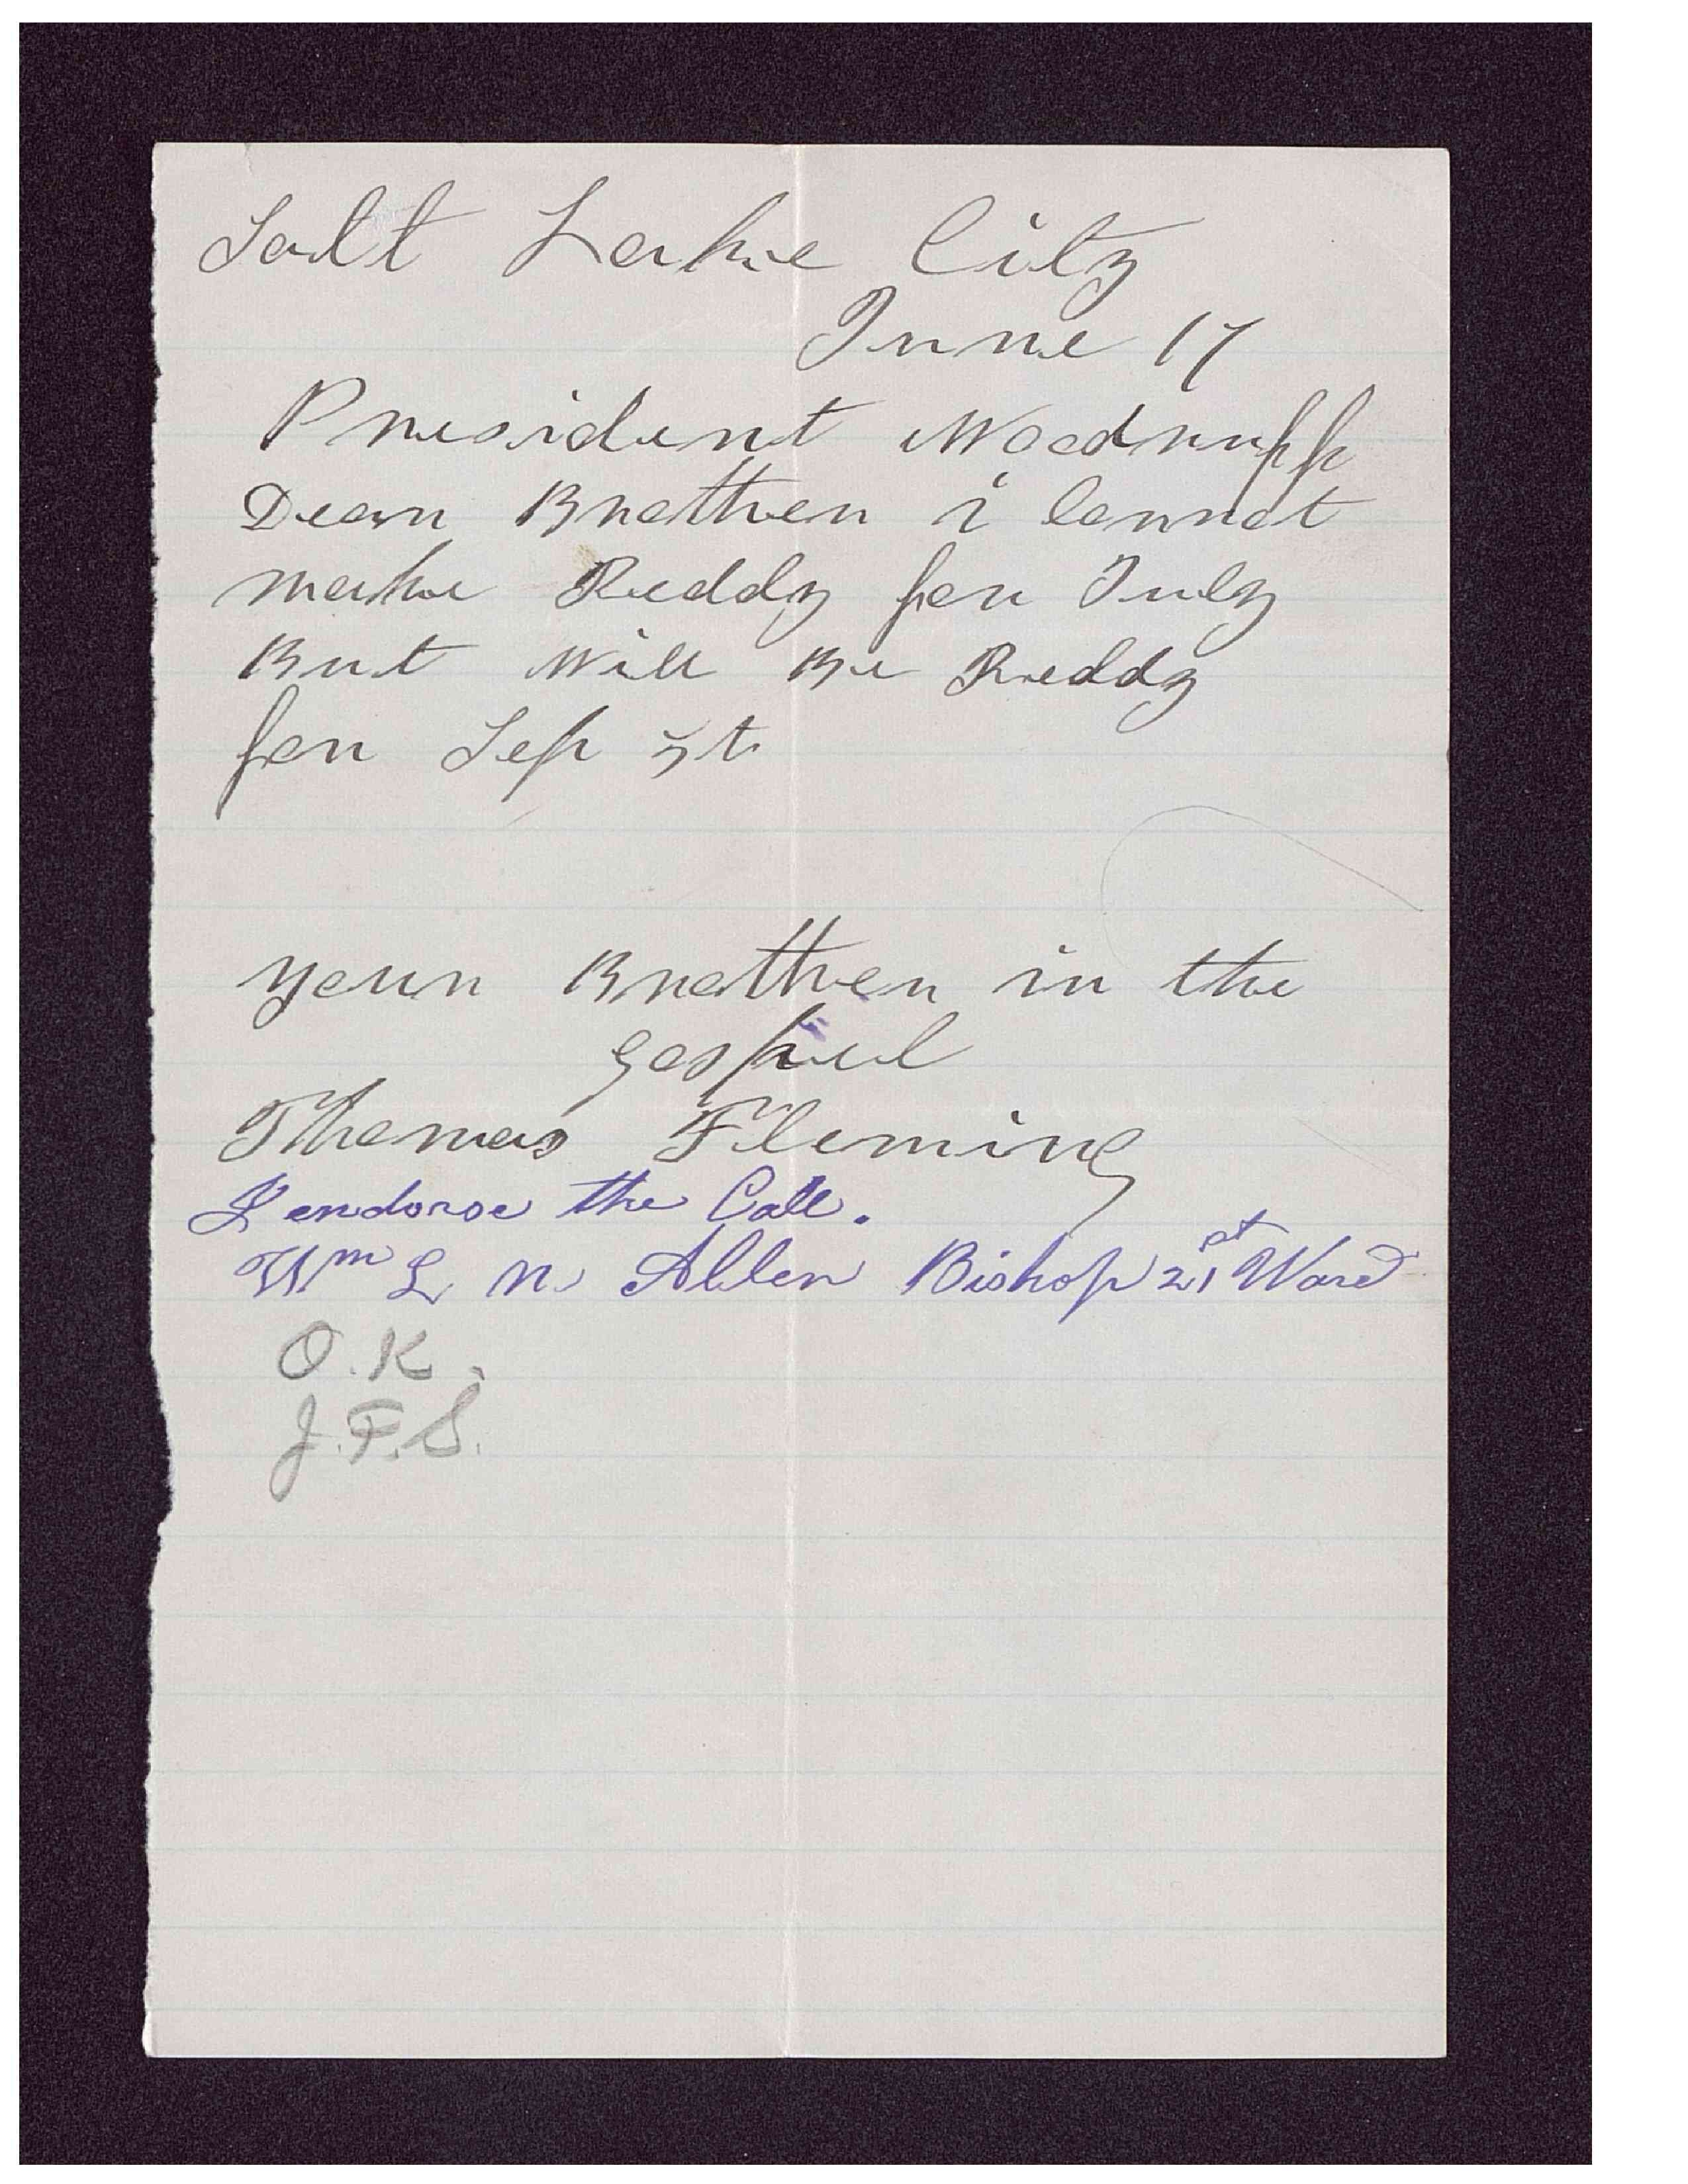 Salt Lake City
June 17
President Woodruff
Dear Brother i Connot
make Reddy for July
But Will Be Reddy
for Sep
your Brother in the
gospuel
Thomas Fleming
I endorse the Call.
Wm L N Allen Bishop 21st Ward
O.K.
J.F.S.